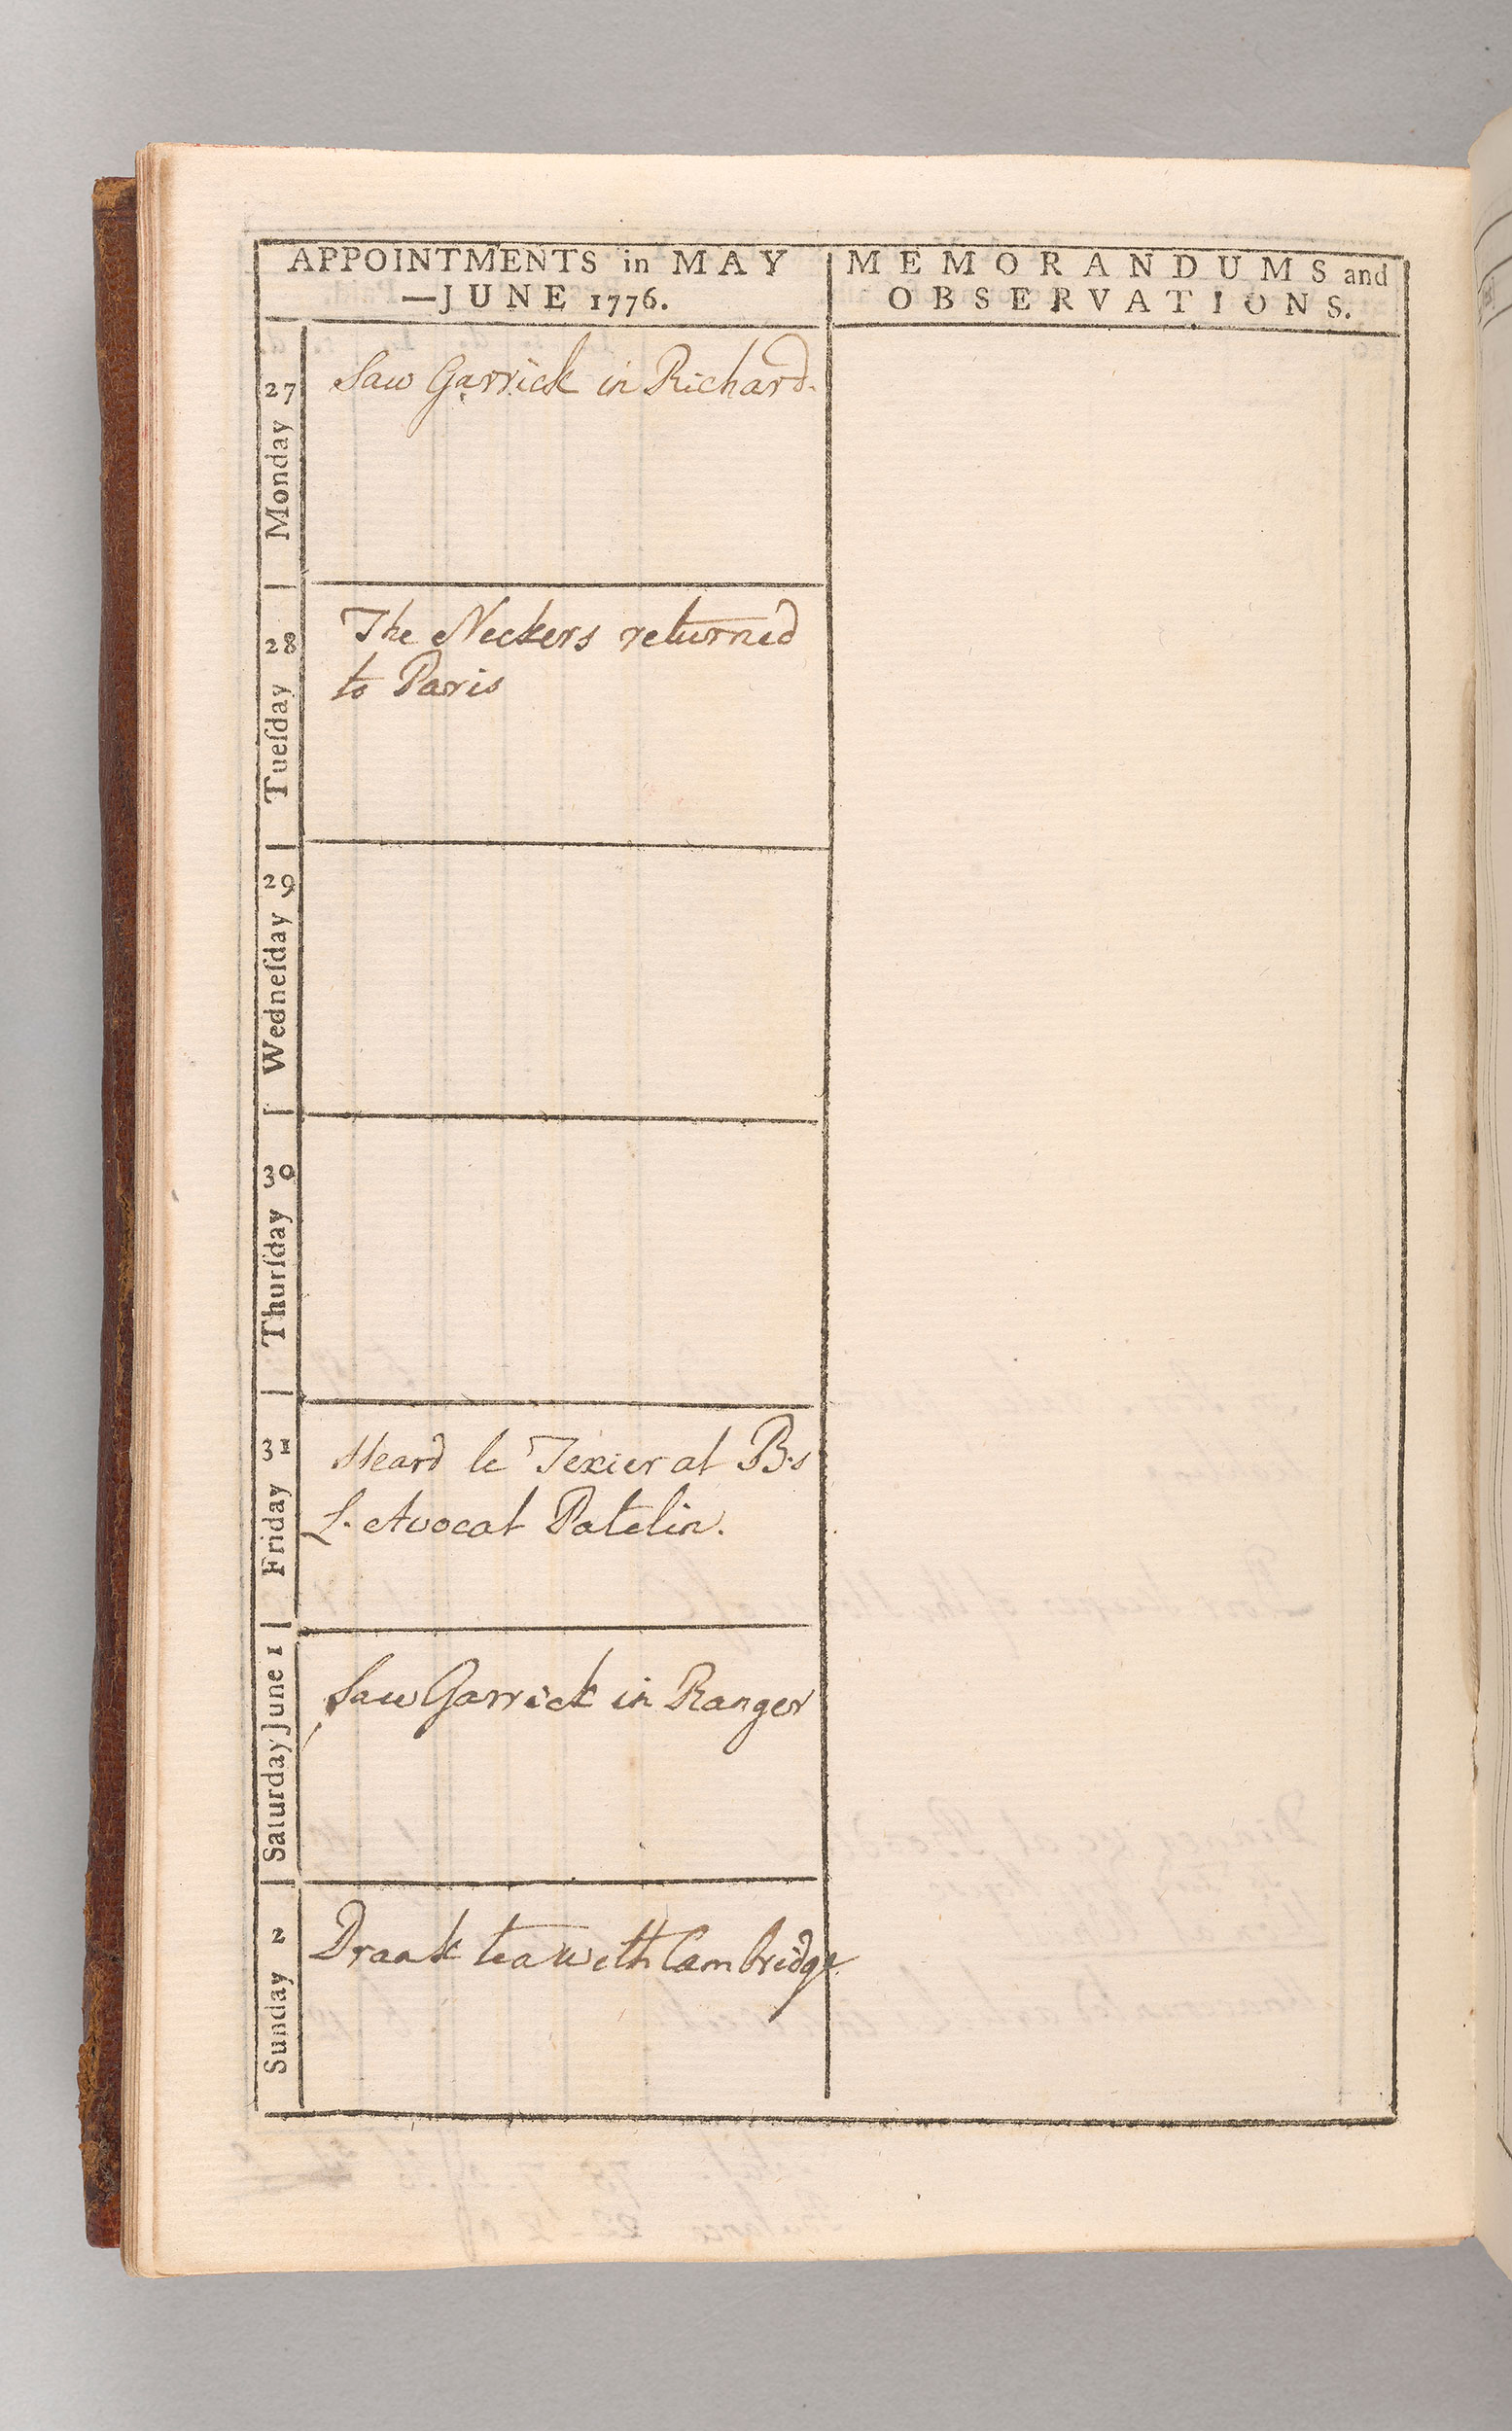 APPOINTMENTS in MAY
—JUNE 1776.
MEMORANDUMS and
OBSERVATIONS.
27 Monday
Saw Garrick in Richard.
28 Tueſday
The Neckers returned
to Paris
29 Wedneſday
30 Thurſday
31 Friday
Heard le Texier at B.s
L. Avocat Patelin.
Saturday June 1
Saw Garrick in Ranger
2 Sunday
Drank tea with Cambridge